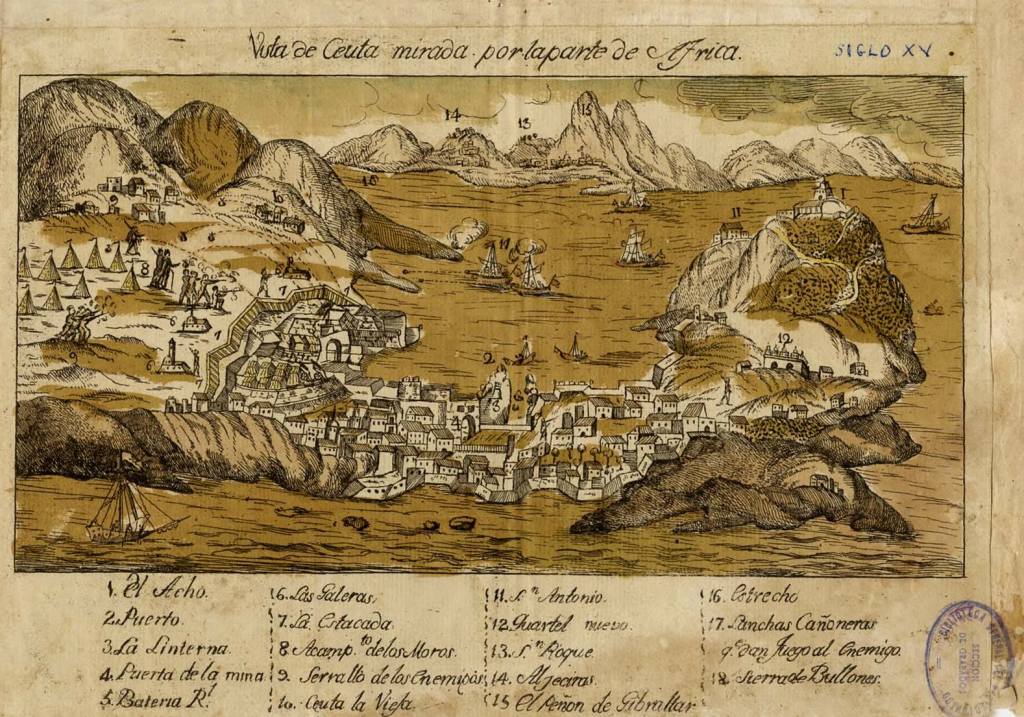 Vista de Ceuta mirada por la parte de Africa.
SIGLO XV
1. El Acho.
2. Puerto.
3. La Linterna.
4. Puerta de la mina
5. Bateria Rl
6. Las Galeras.
7. La Estacada.
8 Acamp.to de los Moros.
9. Serrallo de los Enemigos
10. Ceuta la Vieja.
11. S.n Antonio.
12. Quartel nuevo.
13. S.n Roque.
14. Algeciras.
15 El Peñon de Gibraltar
16. Estrecho
17. Lanchas Cañoneras
q.e dan fuego al Enemigo.
18. Sierra de Bullones.
BIBLIOTECA
SECCION
DE GRABADOS